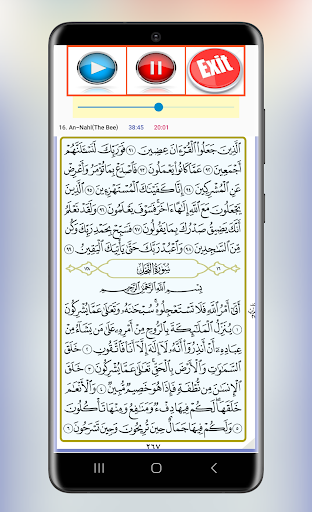 Exit
16. An-Nahl(The Bee) 38:45 20:01
ٱلَّذِينَ جَعَلُوا۟ ٱلْقُرْءَانَ عِضِينَ ٩١ فَوَرَبِّكَ لَنَسْـَٔلَنَّهُمْ
أَجْمَعِينَ ٩٢ عَمَّا كَانُوا۟ يَعْمَلُونَ ٩٣ فَٱصْدَعْ بِمَا تُؤْمَرُ وَأَعْرِضْ
عَنِ ٱلْمُشْرِكِينَ ٩٤ إِنَّا كَفَيْنَـٰكَ ٱلْمُسْتَهْزِءِينَ ٩٥ ٱلَّذِينَ
يَجْعَلُونَ مَعَ ٱللَّهِ إِلَـٰهًا ءَاخَرَ فَسَوْفَ يَعْلَمُونَ ٩٦ وَلَقَدْ نَعْلَمُ
أَنَّكَ يَضِيقُ صَدْرُكَ بِمَا يَقُولُونَ ٩٧ فَسَبِّحْ بِحَمْدِ رَبِّكَ وَكُن
مِّنَ ٱلسَّـٰجِدِينَ ٩٨ وَٱعْبُدْ رَبَّكَ حَتَّىٰ يَأْتِيَكَ ٱلْيَقِينُ ٩٩
سُورَةُ ٱلنَّحْلِ
بِسْمِ ٱللَّهِ ٱلرَّحْمَـٰنِ ٱلرَّحِيمِ
أَتَىٰٓ أَمْرُ ٱللَّهِ فَلَا تَسْتَعْجِلُوهُ سُبْحَـٰنَهُۥ وَتَعَـٰلَىٰ عَمَّا يُشْرِكُونَ
١ يُنَزِّلُ ٱلْمَلَـٰٓئِكَةَ بِٱلرُّوحِ مِنْ أَمْرِهِۦ عَلَىٰ مَن يَشَآءُ مِنْ
عِبَادِهِۦٓ أَنْ أَنذِرُوٓا۟ أَنَّهُۥ لَآ إِلَـٰهَ إِلَّآ أَنَا۠ فَٱتَّقُونِ ٢ خَلَقَ
ٱلسَّمَـٰوَٰتِ وَٱلْأَرْضَ بِٱلْحَقِّ تَعَـٰلَىٰ عَمَّا يُشْرِكُونَ ٣ خَلَقَ
ٱلْإِنسَـٰنَ مِن نُّطْفَةٍ فَإِذَا هُوَ خَصِيمٌ مُّبِينٌ ٤ وَٱلْأَنْعَـٰمَ
خَلَقَهَا لَكُمْ فِيهَا دِفْءٌ وَمَنَـٰفِعُ وَمِنْهَا تَأْكُلُونَ
٥ وَلَكُمْ فِيهَا جَمَالٌ حِينَ تُرِيحُونَ وَحِينَ تَسْرَحُونَ ٦
٢٦٧